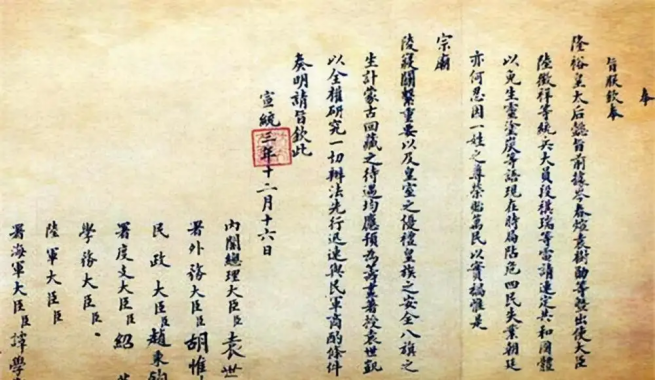 奉
旨朕欽奉
隆裕皇太后懿旨前據岑春煊袁樹勛等暨出使大臣
陸徵祥等統兵大員段祺瑞等電請速定共和國體
以免生靈塗炭等語現在時局阽危四民失業朝廷
亦何忍因一姓之尊榮貽萬民以實禍惟是
宗廟
陵寢關繫重要以及皇室之優禮皇族之安全八旗之
生計蒙古回藏之待遇均應預為籌畫著授袁世凱
以全權研究一切辦法先行迅速與民軍商酌條件
奏明請旨欽此
宣統三年十二月十六日
內閣總理大臣臣袁世
署外務大臣臣胡惟
民政大臣臣趙秉鈞
署度支大臣臣紹
學務大臣臣
陸軍大臣臣
署海軍大臣臣譚學